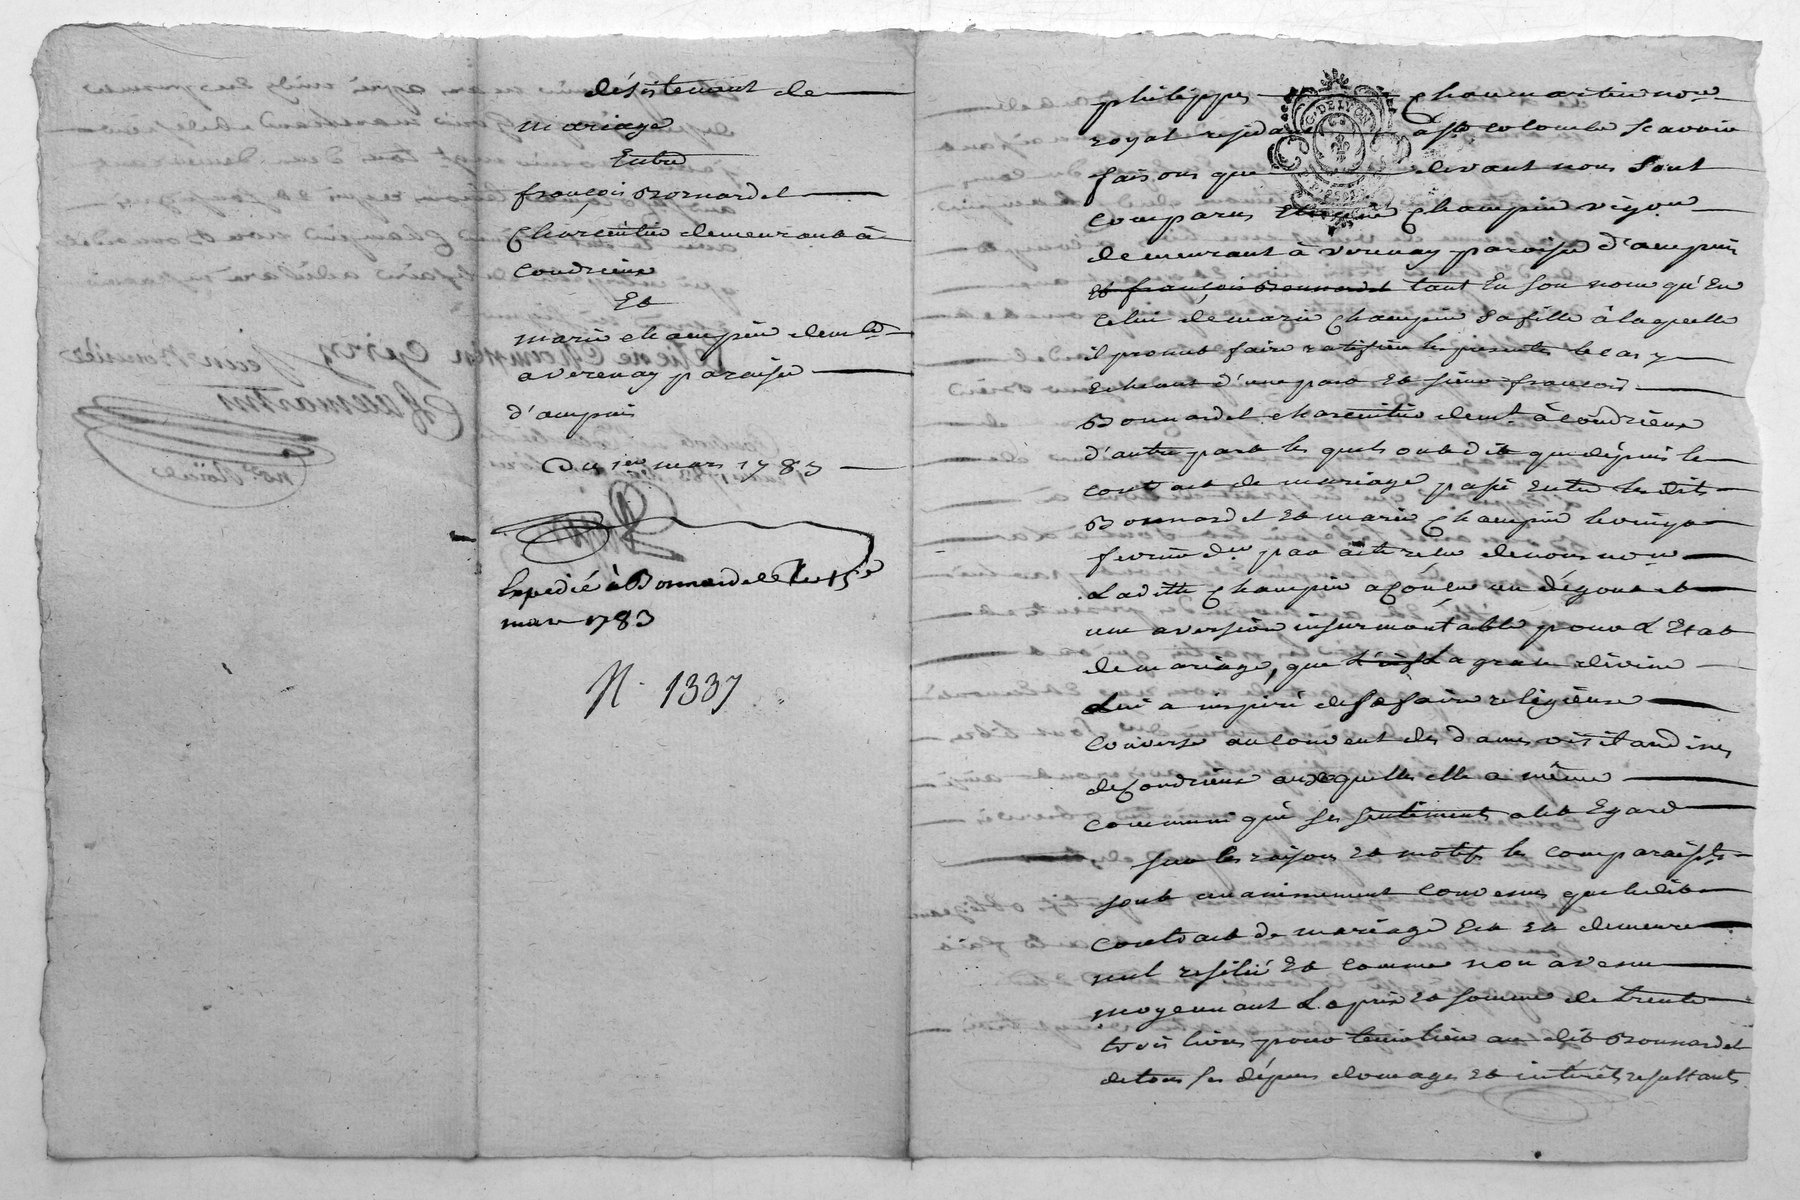 désistement de
mariage
Entre
françois Bonnardel
Charcutier demeurant à
Condrieux
Et
marie champin dem.te
a verenay paroisse
d'ampuis
Du 1er mars 1783
Expedié à Bonnardel le 15e
mars 1783
N. 1337
philippes Chaumartin no.re
royal residant à ste colombe scavoir
faisons que devant nous sont
comparus Etienne champin vigon
demeurant à verenay paroisse d'ampuis
et françois Bonnardel tant En son nom qu'En
celui de marie champin sa fille à laquelle
il promet faire ratiffier les presentes le cas y
echeant d'une part et sieur françois
Bonnardel charcutier demt. à Condrieux
d'autre part les quels ont dit que depuis le
contract de mariage passé Entre lesdits
Bonnardel et marie champin le vingt
fevrier der par acte reçu de nous no.re
Ladite champin a conçu un dégout et
une aversion insurmontable pour L'Etat
de mariage, que La grace divine
Lui a inspiré de se faire religieuse
converse au couvent des dames visitandines
de Condrieux auxquelles elle a même
communiqué ses sentiments a cet Egard
sur les raisons et motifs les comparaissts
sont unanimement convenus que ledit
contract de mariage Est et demeure
nul resilié et comme non avenu
moyennant La prix et somme de trente
trois livres pour tenir lieu au dit Bonnardel
de tous ses dépens domages et intérêts resultants